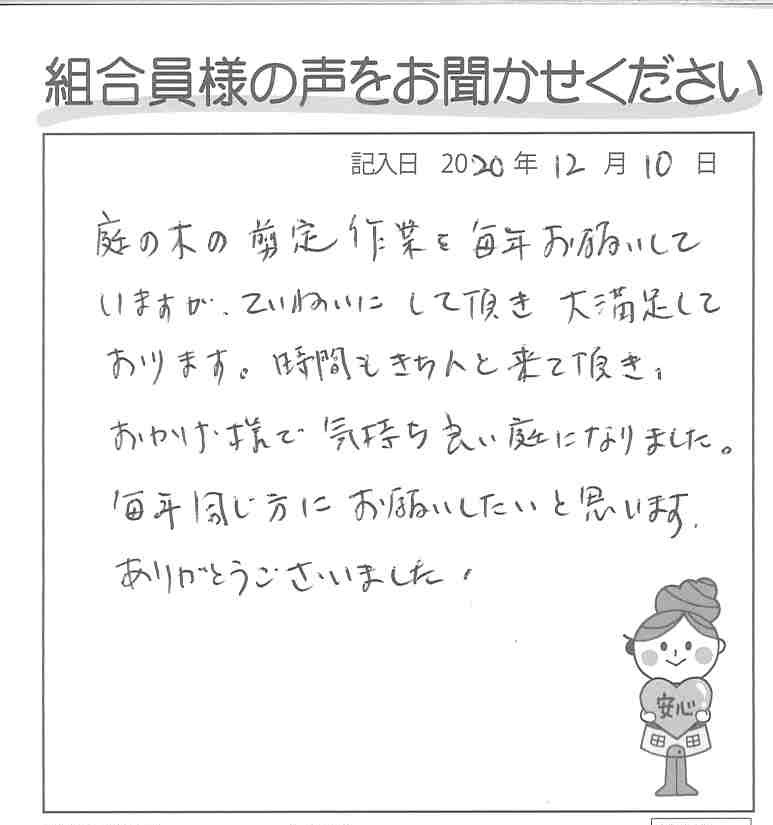 組合員様の声をお聞かせください
記入日 2020年 12月 10日
庭の木の剪定作業を毎年お願いして
いますが、ていねいにして頂き 大満足して
おります。時間もきちんと来て頂き、
おかげ様で気持ち良い庭になりました。
毎年同じ方にお願いしたいと思います。
ありがとうございました!
安心